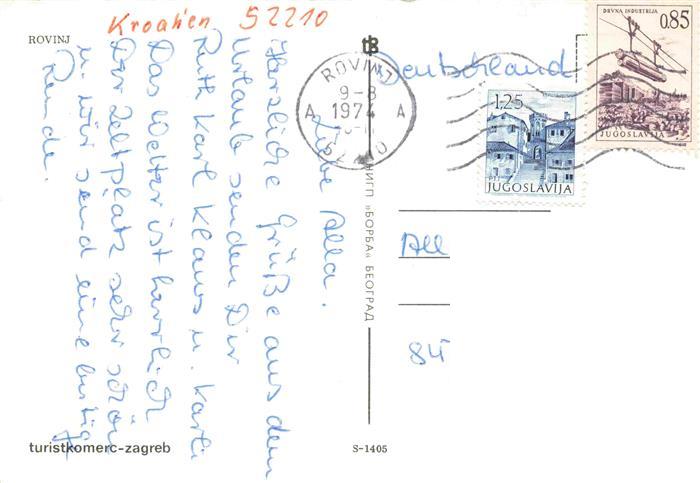 Kroatien 52210
ROVINJ
Liebe Alla.
Herzliche Grüße aus dem
Urlaub senden Dir
Ruth Karl Klaus u. Karli
Das Wetter ist herrlich
Der Zeltplatz sehr schön
u. wir send eine lustige
Runde.
turistkomerc-zagreb
tB
ROVINJ
9-8
1974
A A
НИГП »БОРБА« БЕОГРАД
S-1405
Deutschland
DRVNA INDUSTRIJA
0.85
JUGOSLAVIJA
1.25
JUGOSLAVIJA
All
84